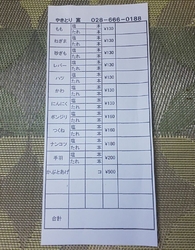 やきとり 寛 028-666-0188
もも 塩 本 たれ 本 ¥130
ねぎま 塩 本 たれ 本 ¥130
砂ぎも 塩 本 たれ 本 ¥130
レバー 塩 本 たれ 本 ¥130
ハツ 塩 本 たれ 本 ¥130
かわ 塩 本 たれ 本
にんにく 塩 本 たれ 本
ボンジリ 塩 本 たれ 本 ¥180
つくね 塩 本 たれ 本 ¥180
ナンコツ 塩 本 たれ 本 ¥180
手羽 塩 本 たれ 本 ¥200
かぶとあげ コ ¥500
合計